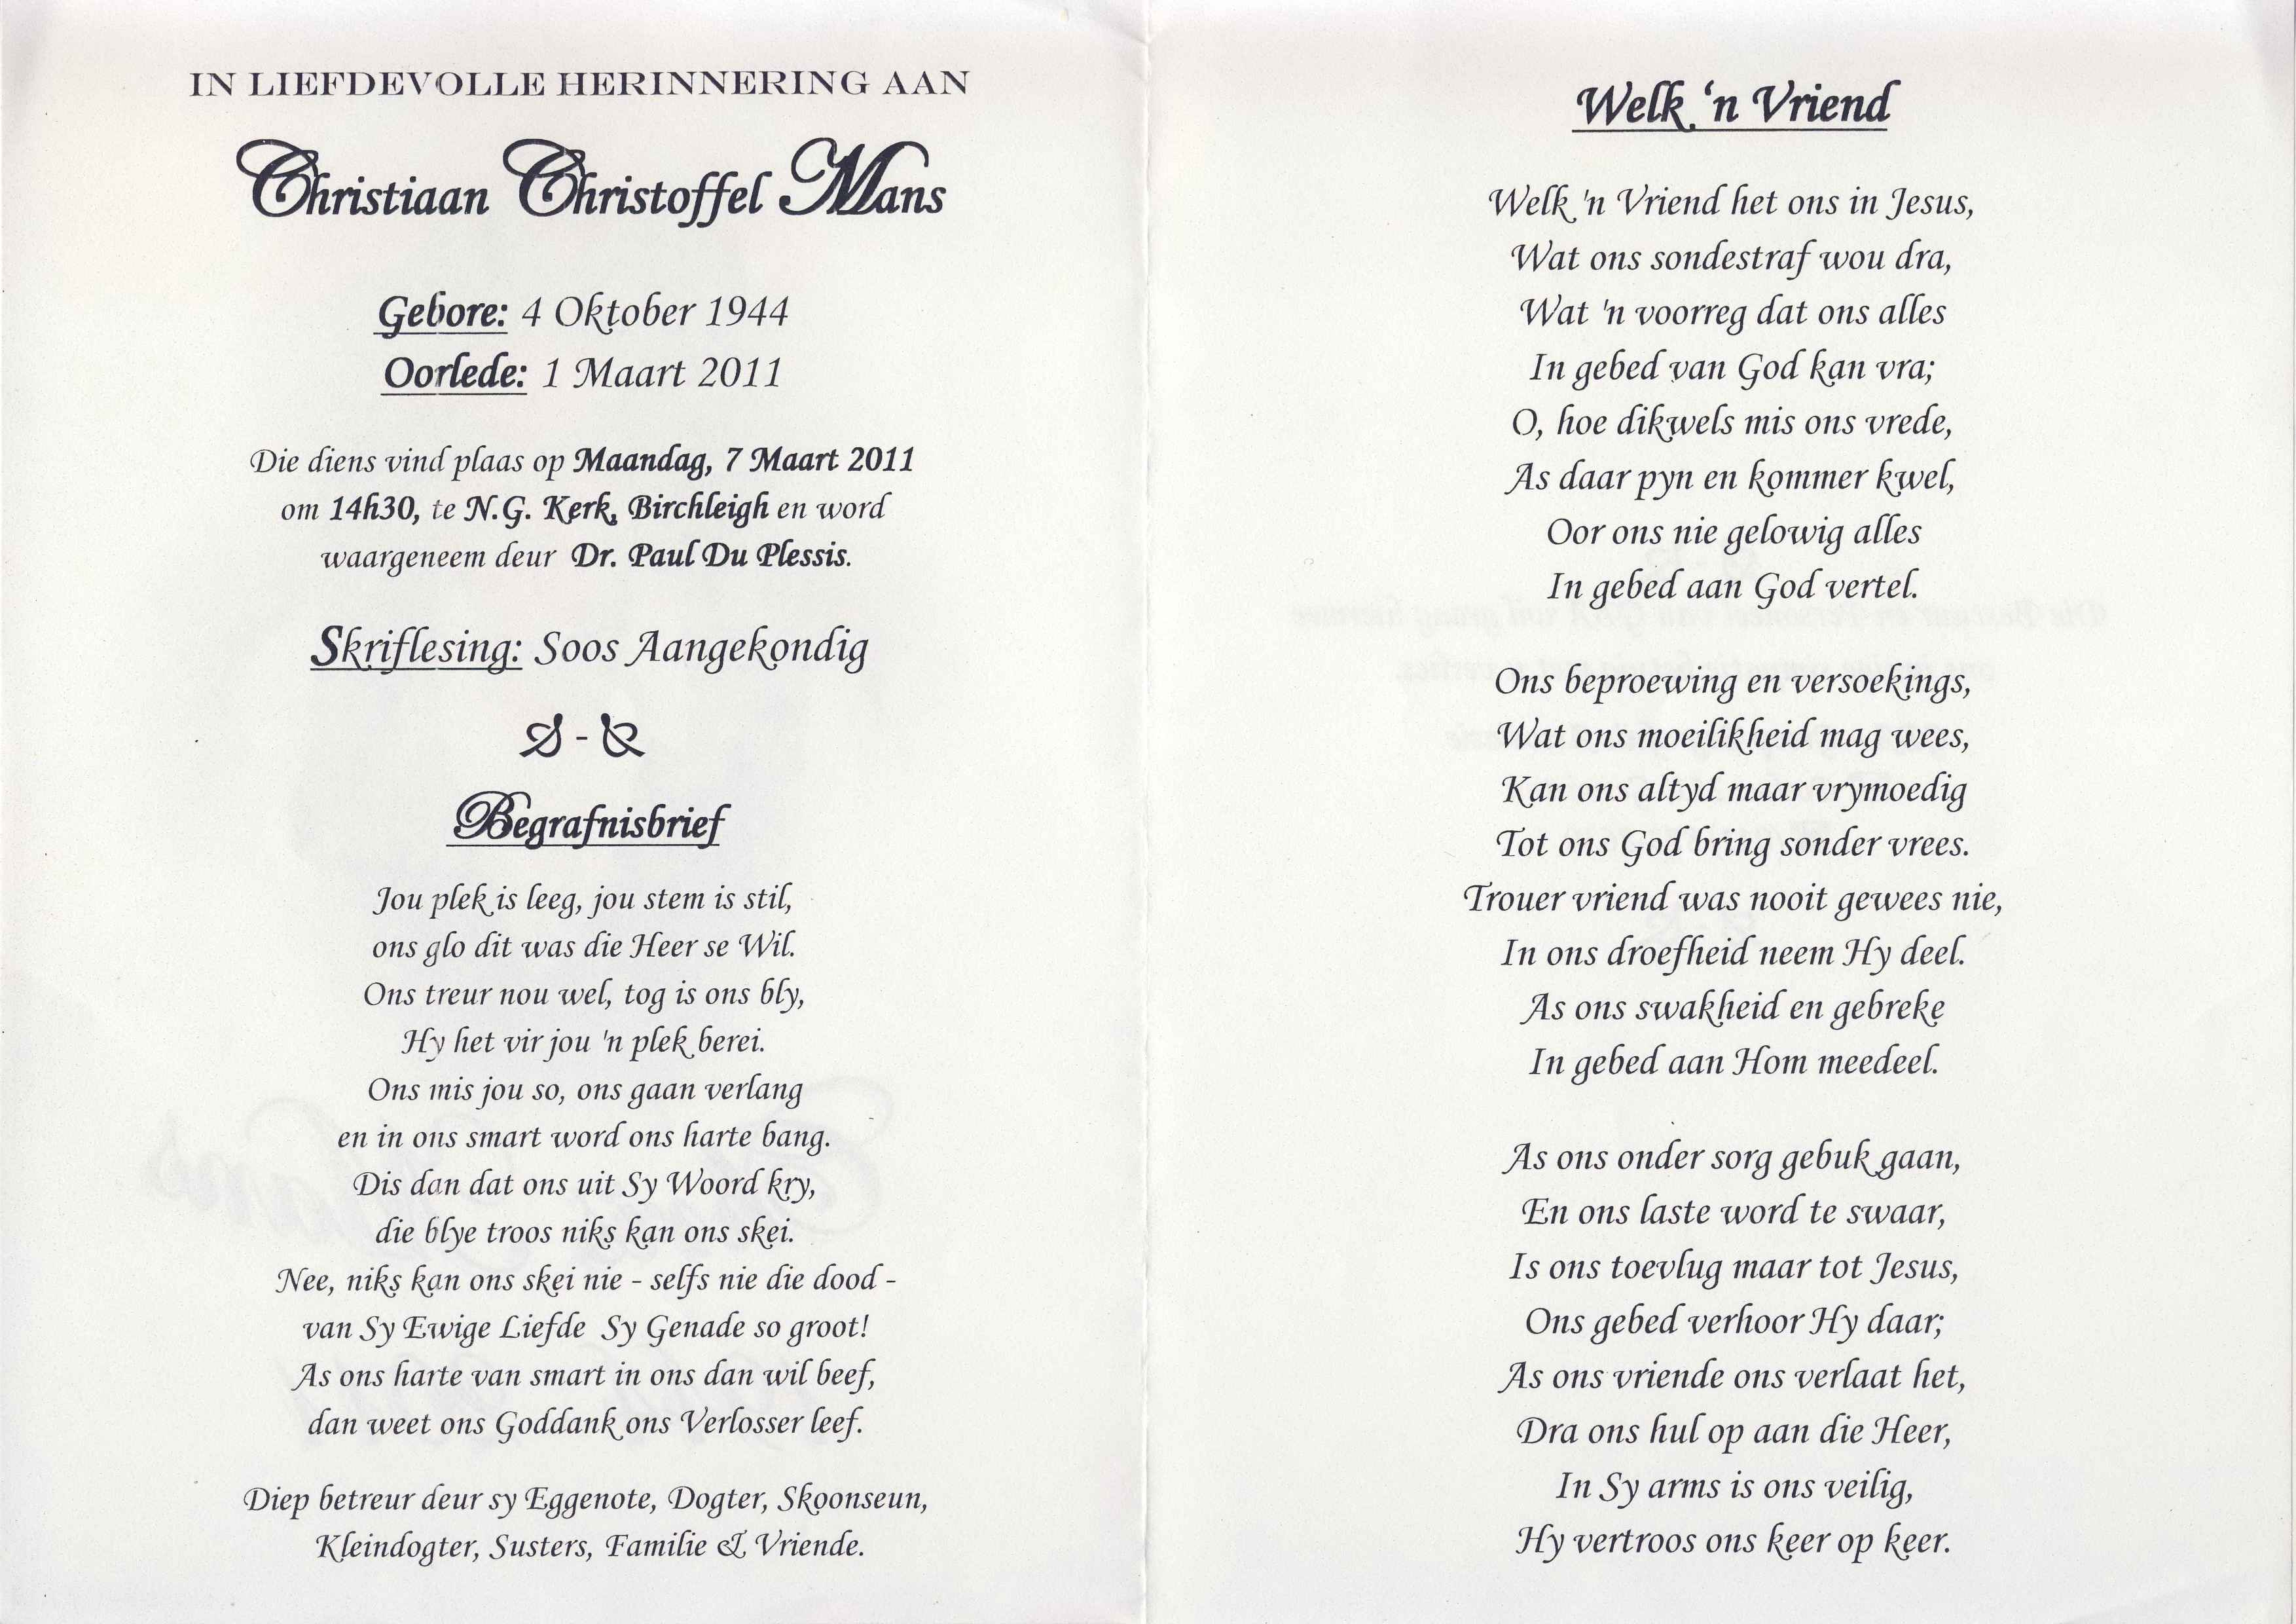 IN LIEFDEVOLLE HERINNERING AAN
Christiaan Christoffel Mans
Gebore: 4 Oktober 1944
Oorlede: 1 Maart 2011
Die diens vind plaas op Maandag, 7 Maart 2011
om 14h30, te N.G. Kerk, Birchleigh en word
waargeneem deur Dr. Paul Du Plessis.
Skriflesing: Soos Aangekondig
-
Begrafnisbrief
Jou plek is leeg, jou stem is stil,
ons glo dit was die Heer se Wil.
Ons treur nou wel, tog is ons bly,
Hy het vir jou 'n plek berei.
Ons mis jou so, ons gaan verlang
en in ons smart word ons harte bang.
Dis dan dat ons uit Sy Woord kry,
die blye troos niks kan ons skei.
Nee, niks kan ons skei nie - selfs nie die dood -
van Sy Ewige Liefde Sy Genade so groot!
As ons harte van smart in ons dan wil beef,
dan weet ons Goddank ons Verlosser leef.
Diep betreur deur sy Eggenote, Dogter, Skoonseun,
Kleindogter, Susters, Familie & Vriende.
Welk ‘n Vriend
Welk 'n Vriend het ons in Jesus,
Wat ons sondestraf wou dra,
Wat 'n voorreg dat ons alles
In gebed van God kan vra;
O, hoe dikwels mis ons vrede,
As daar pyn en kommer kwel,
Oor ons nie gelowig alles
In gebed aan God vertel.
Ons beproewing en versoekings,
Wat ons moeilikheid mag wees,
Kan ons altyd maar vrymoedig
Tot ons God bring sonder vrees.
Trouer vriend was nooit gewees nie,
In ons droefheid neem Hy deel.
As ons swakheid en gebreke
In gebed aan Hom meedeel.
As ons onder sorg gebuk gaan,
En ons laste word te swaar,
Is ons toevlug maar tot Jesus,
Ons gebed verhoor Hy daar;
As ons vriende ons verlaat het,
Dra ons hul op aan die Heer,
In Sy arms is ons veilig,
Hy vertroos ons keer op keer.